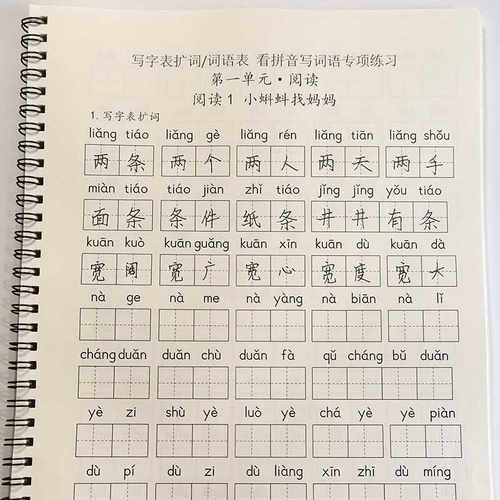 写字表扩词/词语表 看拼音写词语专项练习
第一单元·阅读
阅读1 小蝌蚪找妈妈
1. 写字表扩词
liǎng tiáo liǎng gè liǎng rén liǎng tiān liǎng shǒu
两条 两个 两人 两天 两手
miàn tiáo tiáo jiàn zhǐ tiáo jǐng jǐng yǒu tiáo
面条 条件 纸条 井井有条
kuān kuò kuān guǎng kuān xīn kuān dù kuān dà
宽阔 宽广 宽心 宽度 宽大
nà ge nà me nà yàng nà biān nà lǐ
cháng duǎn duǎn chù duǎn fà qǔ cháng bǔ duǎn
yè zi shù yè luò yè chá yè yè piàn
dù pí dù zi dù liàng xīn zhī dù míng